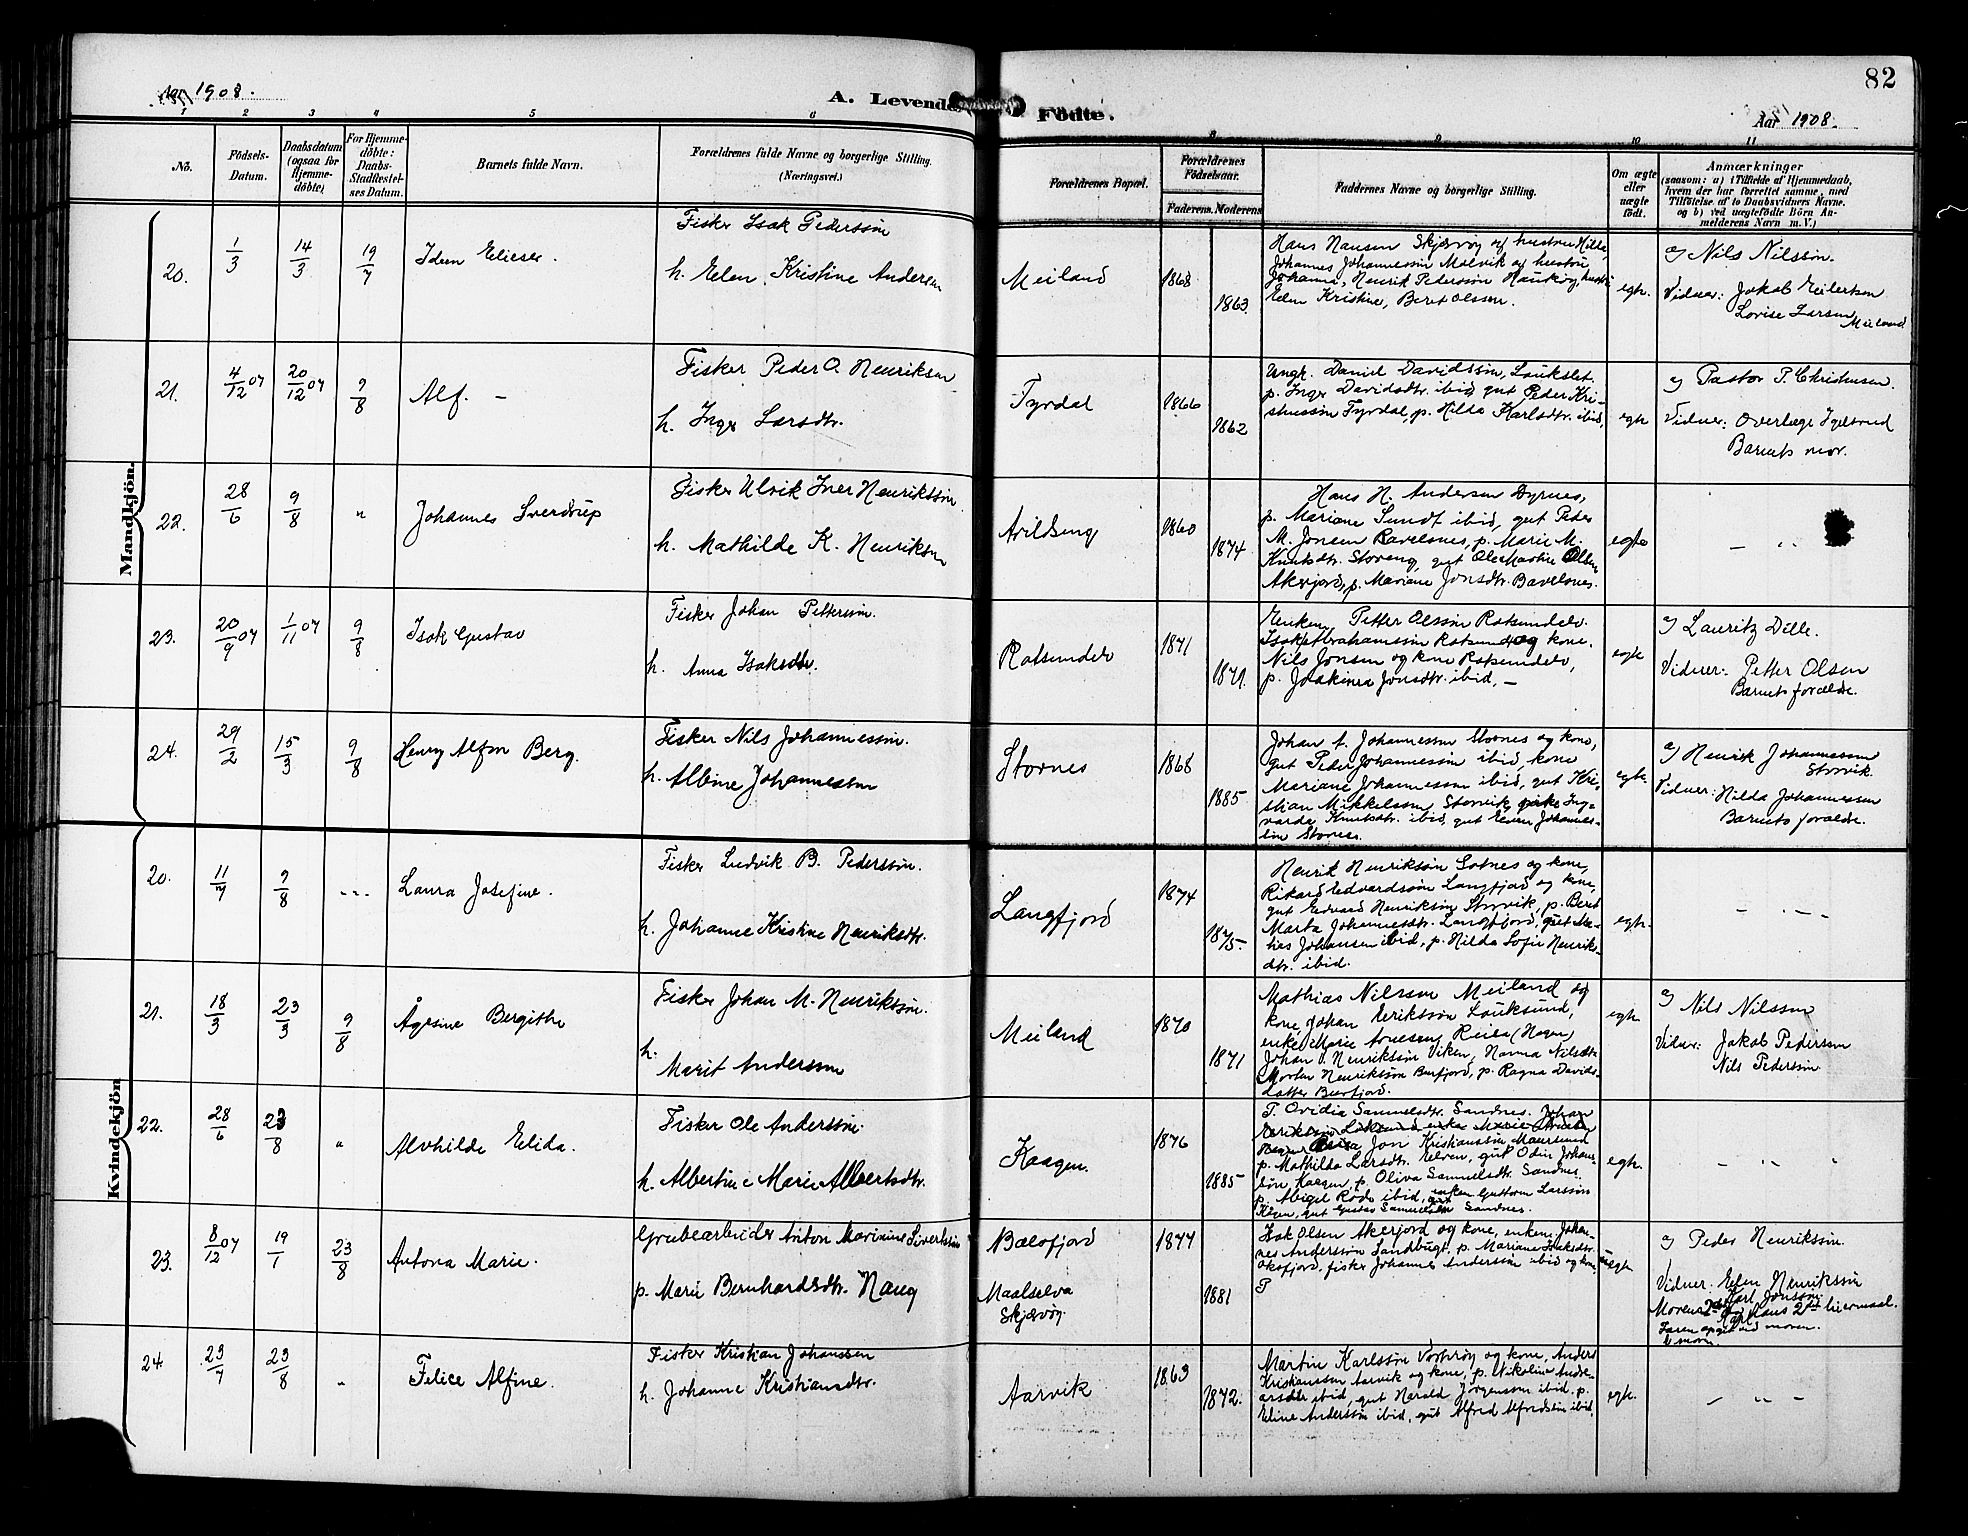 82
Aar 1908.
A. Levende Födte.
Aar 1908.
1 2 3 4 5 6 8 9 10 11
No.
Födsels-Datum.
Daabsdatum (ogsaa for Hjemme-döbte)
For Hjemme-döbte: Daabs-Stadfæstel-ses Datum.
Barnets fulde Navn.
Forældrenes fulde Navne og borgerlige Stilling. (Næringsvei.)
Forældrenes Bopæl.
Forældrenes Födselsaar.
Faderens. Moderens
Faddernes Navne og borgerlige Stilling.
Om ægte eller uægte födt.
Anmærkninger
(saasom: a) i Tilfælde af Hjemmedaab,
hvem der har forrettet samme, med
Tilföielse af to Daabsvidners Navne.
og b) ved uægtefödte Börn An-
melderens Navn m.V.)
Mandkjön.
20. 1/3 14/3 19/7
Fisker Isak Pederssön
h. Elen Kristine Andersen
Meiland 1868 1863.
Hans Hansen Skjærvöy og hustru Hilda,
Johannes Johannessön Molvik og hustru
Johanna, Henrik Pederssön Haukøy, hustru
Elen Kristine, Beret Olssen.
egte.
a) Nils Nilssön.
Vidner: Jakob Eilertsen
Lovise Larsen
Meiland
21. 4/12 07 20/12 07 9/8 Alf. –
Fisker Peder O. Henriksen
h. Inger Larsdtr.
Tyrdal 1866 1862
Ungk. Daniel Davidssön, Laukslet.
p. Inger Davidsdtr. ibid, gut Peder Kri-
stianssön Tyrdal, p. Hilda Karlsdtr. ibid,
egte
a) Pastor P. Christensen.
Vidner: Overlæge
Barnets mor.
22. 28/6 9/8 " Johannes Sverdrup
Fisker Ulrik Iver Henrikssön
h. Mathilde K. Henriksen
1860 1874
Hans H. Andersen Dyrnes,
p. Mariane Sundt ibid, gut Peder
M. Jonsen Ravelsnes, p. Marie M.
Knutsdtr. Storeng, gut Ole Martin Olsen
Akerjord, p. Mariane Jonsdtr. Bavelsnes.
egte
– " –
23. 20/9 07 1/11 07 9/8 Isak Gustav
Fisker Johan Petterssön.
h. Anna Isaksdtr.
Rotsundelv 1871 1871.
Enkem. Petter Olssön Rotsundelv.
Isak Abrahamssön Rotsund og kone.
Nils Jonsen og kone Rotsundelv,
p. Joakima Jonsdtr. ibid, –
egte
a) Lauritz Dille.
Vidner: Petter Olsen
Barnets forældre.
24. 29/2 15/3 9/8 Henry Alfon Berg.
Fisker Nils Johannessön.
h. Albine Johannessen
Stornes 1868 1885
Johan A. Johannessen Stornes og kone,
gut Peder Johannessön ibid, kone
Mariane Johannessen ibid, gut Kri-
stian Mikkelssön, Storvik, pike Ing-
varda Knutsdtr. ibid, gut Einar Johannes-
sen Stornes.
egte.
a) Henrik Johannessen
Storvik.
Vidner: Hilda Johannessen
Barnets forældre.
Kvindekjön
20. 11/7 9/8 --- Laura Josefine.
Fisker Ludvik B. Pederssön.
h. Johanne Kristine Henriksdtr.
Langfjord 1874 1875.
Henrik Henrikssön Sotnes og kone,
Rikard Edvardssön Langfjord og kone,
gut Edvard Henrikssön Storvik, p. Beret
Marta Johannesdtr. Langfjord, gut Ma-
tias Johansen ibid, p. Hilda Sofie Henriks-
dtr. ibid.
egte.
– . – –
21. 18/3 23/3 9/8 Ågesine Bergithe
Fisker Johan M. Henrikssön.
h. Marit Anderssen
Meiland 1870 1871
Mathias Nilssön Meiland og
kone, Johan Erikssön Lauksund,
enke Marie Arnesen, Reisa (Hagen)
Johan O. Henrikssön Viken, Hanna Nilsdtr.
Morten Henrikssön Burfjord, p. Ragna Davids-
datter Burfjord.
egte
a) Nils Nilssön
Vidner: Jakob Pederssön
Nils Pederssön.
22. 28/6 23/8 " Alvhilde Elida.
Fisker Ole Anderssön.
h. Albertine Marie Albertsdtr.
Kaagen. 1876 1885
P. Ovidia Samuelsdtr. Sandnes.
Jon Kristianssön Maursund
p. Mathilda Larsdtr. Elven, gut Odin Johans-
sön, Kaagen, p. Oliva Samuelsdtr. Sandnes
p. Abigel Röde ibid, enkem. Guttorm Larssön
Elven, gut Gustav Samuelsen Sandnes.
egte.
– " –
23. 8/12 07 19/1 23/8 Antona Marie.
Grubearbeider Anton Marinius Sivertssön
p. Marie Bernhardsdtr. Haug
Balsfjord
Maalselva
Skjærvöy.
1877 1881
Isak Olsen Akerjord og kone, enkem. Johan-
nes Anderssön Sandbugt, p. Mariane Isaksdtr.
Oksfjord, fisker Johannes Anderssön ibid og kone
P
uegte
a) Peder Henrikssön.
Vidner: Elen Henrikssön
Karl Jonssön
24. 23/7 23/8 " Felice Alfine.
Fisker Kristian Johanssen
h. Johanne Kristiansdtr.
Aarvik 1863 1872.
Martin Karlssön Vorterøy og kone, Anders
Kristianssen Aarvik og kone, p. Nikoline Andre-
asdtr. ibid, gut Harald Jörgenssen ibid, p.
Eline Anderssön ibid, gut Alfred Alfredssön ibid.
egte.
– " –